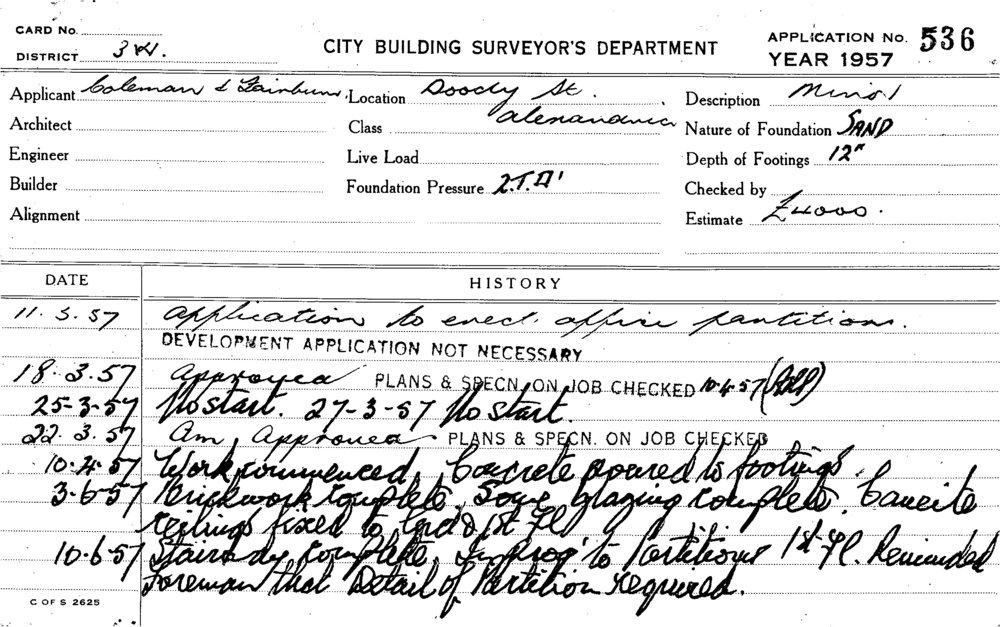 CARD No.
DISTRICT 3W.
CITY BUILDING SURVEYOR'S DEPARTMENT
APPLICATION No. 536
YEAR 1957
Applicant Coleman & Fairburn. Location Doody St. Description Minor
Architect Class Alexandria Nature of Foundation SAND
Engineer Live Load Depth of Footings 12"
Builder Foundation Pressure 2.T.□' Checked by
Alignment Estimate £4000.
DATE HISTORY
11.3.57 Application to erect office partitions.
DEVELOPMENT APPLICATION NOT NECESSARY
18.3.57 Approved PLANS & SPECN. ON JOB CHECKED 10.4.57
25-3-57 No start. 27-3-57 No start.
22.3.57 Am, Approved PLANS & SPECN. ON JOB CHECKED
10.4.57 Work commenced, Concrete poured to footings.
3-6-57 Brickwork complete, Some glazing complete. Caneite
ceilings fixed to Grd & 1st Fl
10.6.57 complete. In Prog' to Partitions 1st Fl. Reminded
Foreman that Detail of Partition required.
C OF S 2625